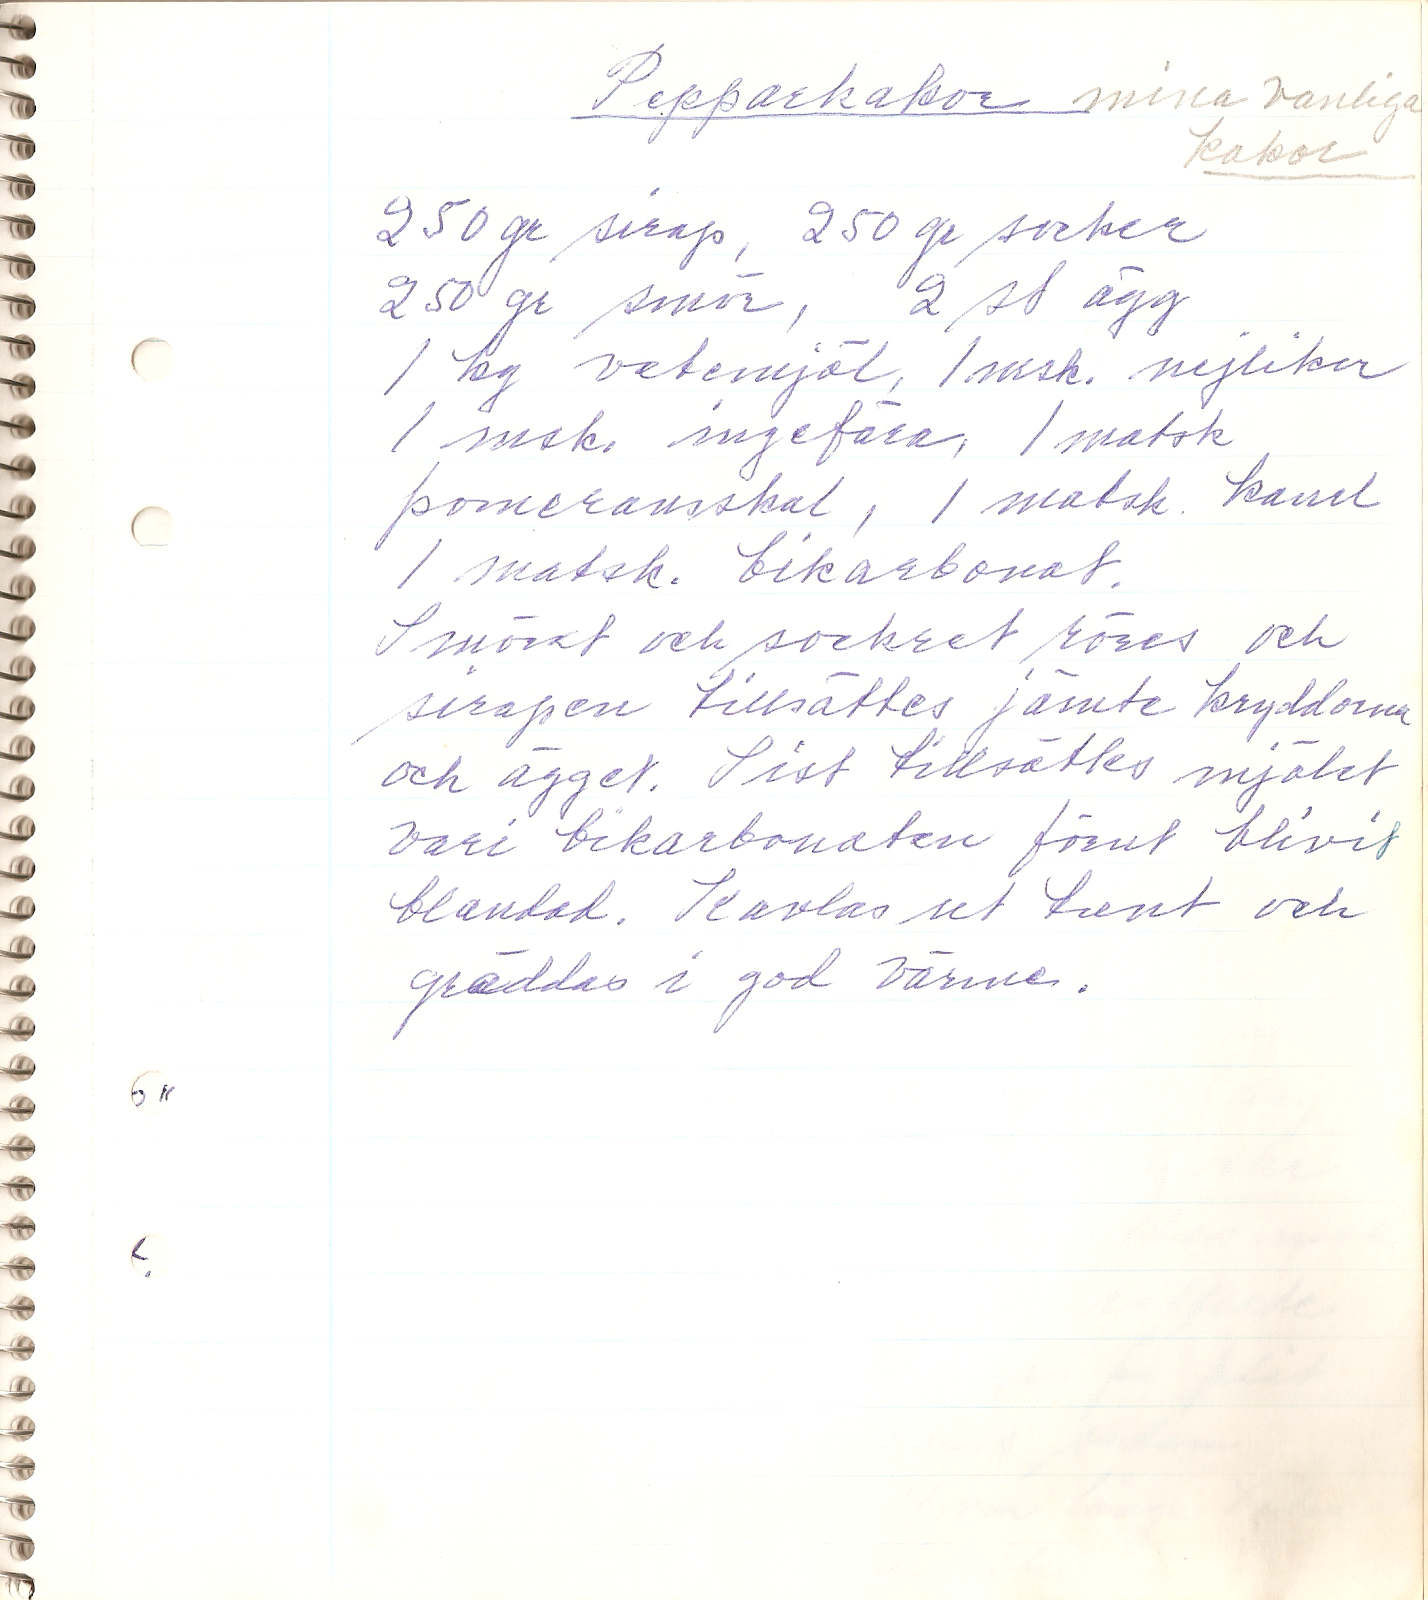 Pepparkakor mina vanliga
kakor
250 gr sirap, 250 gr socker
250 gr smör, 2 st ägg
1 kg vetemjöl, 1 msk. nejlikor
1 msk. ingefära, 1 matsk
pomeransskal, 1 matsk. kanel
1 matsk. bikarbonat.
Smöret och sockret röres och
sirapen tillsättes jämte kryddorna
och ägget. Sist tillsättes mjölet
vari bikarbonaten först blivit
blandad. Kavlas ut tunt och
gräddas i god värme.